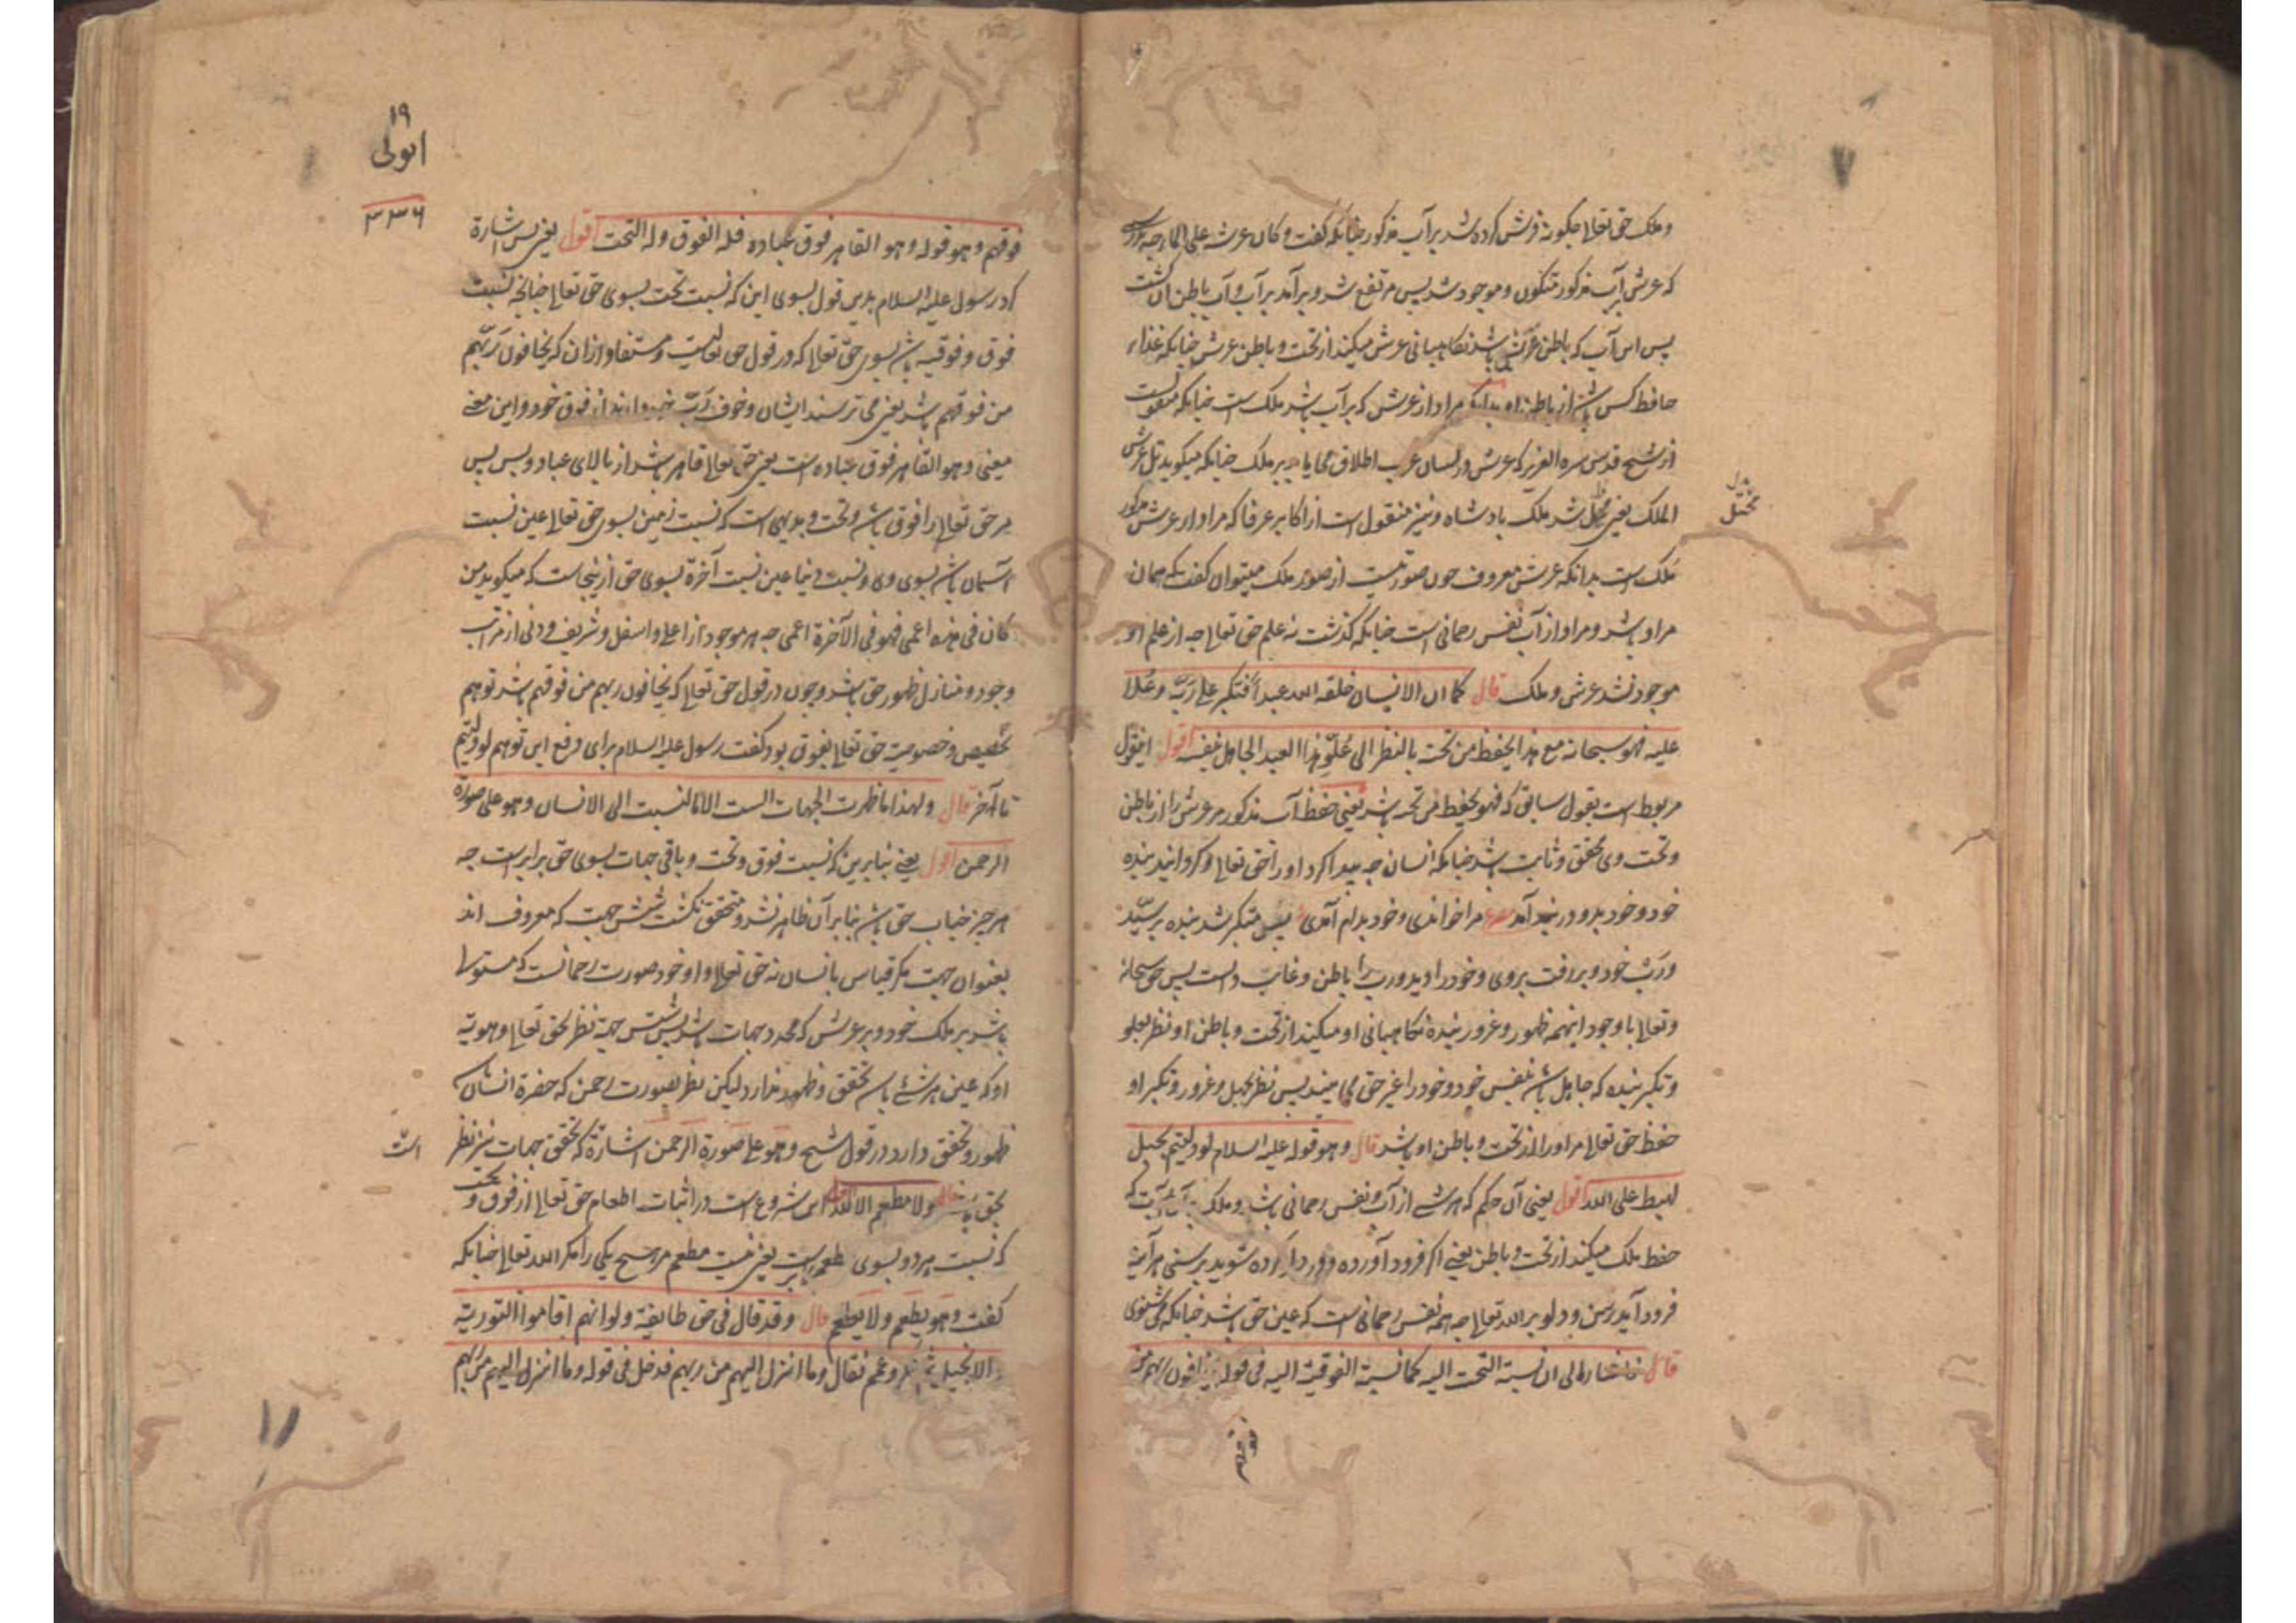 وملک حق تعالی چکونه فرش کرده شد بر آب مذکور چنانکه گفت وکان عرشه علی الماء چه
که عرش بر آب مذکور متکون وموجود شد پس مرتفع شد وبرآمد بر آب وآب باطن آن گشت
پس این آب که باطن عرش باشد نکاهبانی عرش میکند از تحت وباطن عرش چنانکه غذاء
حافظ کس باشد از باطن او بدانکه مراد از عرش که بر آب باشد ملک است چنانکه منقولست
از شیخ قدس سره العزیز که عرش در لسان عرب اطلاق می یابد بر ملک چنانکه میکوید ثل عرش
الملک یعنی مختل شد ملک بادشاه ونیز منقول است از اکابر عرفا که مراد از عرش مذکور
ملک است بدانکه عرش معروف چون صورتیست از صور ملک میتوان گفت که همان
مراد باشد ومراد از آب نفس رحمانی است چنانکه گذشت نه علم حق تعالی چه از علم او
موجود نشد عرش وملک قال کما ان الانسان خلقه الله عبدا فتکبر علی ربه وعلا
علیه فهو سبحانه مع هذا یحفظه من تحته بالنظر الی علو هذا العبد الجاهل بنفسه اقول اینقول
مربوط است بقول سابق که فهو یحفظه من تحته باشد یعنی حفظ آب مذکور مر عرش را از باطن
وتحت وی محقق وثابت باشد چنانکه انسان چه پیدا کرد اورا حق تعالی وگردانید بنده
خود وخود بدو در خود آمد مصرع مرا خواندی وخود بدام آمدی پس متکبر شد بنده بر سید
ورب خود وبر رفت بروی وخود را دید ورب را باطن وغایب دانست پس حق سبحانه
وتعالی باوجود اینهمه ظهور وغرور بنده نکاهبانی او میکند از تحت وباطن او نظر بعلو
وتکبر بنده که جاهل باشد بنفس خود وخود را غیر حق می بیند پس نظر بجهل وغرور وتکبر او
حفظ حق تعالی مر اورا از تحت وباطن او باشد قال وهو قوله علیه السلام لو دلیتم بحبل
لهبط علی الله اقول یعنی آن حکم که هر شی از آب ونفس رحمانی باشد وملک
حفظ ملک میکند از تحت وباطن یعنی اگر فرود آورده شوید برسنی هر آینه
فرود آید رسن ودلو بر الله تعالی چه همه نفس رحمانی است که عین حق باشد چنانکه می شنوی
قال فاشار الی ان نسبة التحت الیه کما نسبة الفوقیة الیه فی قوله یخافون ربهم من
بدل
مختل
۱۹
انولی
۳۳۶
فوقهم وهو قوله وهو القاهر فوق عباده فله الفوق وله التحت اقول یعنی پس اشارة
کرد رسول علیه السلام بدین قول بسوی این که نسبت تحت بسوی حق تعالی چنانچه نسبت
فوق وفوقیه باشد بسوی حق تعالی که در قول حق تعالیست ومستفاد از آن که یخافون ربهم
من فوقهم باشد یعنی می ترسند ایشان وخوف رب خود دارند از فوق خود واین معنی
معنی وهو القاهر فوق عباده است یعنی حق تعالی قاهر باشد از بالای عباد وپس پس
مر حق تعالی را فوق باشد وتحت وبدیهی است که نسبت زمین بسوی حق تعالی عین نسبت
آسمان باشد بسوی وی ونسبت دنیا عین نسبت آخرة بسوی حق ازینجاست که میکوید من
کان فی هذه اعمی فهو فی الآخرة اعمی چه هر موجود از اعلی واسفل وشریف ودنی از مراتب
وجود ومنازل ظهور حق باشد وچون در قول حق تعالی که یخافون ربهم من فوقهم باشد توهم
تخصیص وخصوصیت حق تعالی بفوق بود گفت رسول علیه السلام برای رفع این توهم لو دلیتم
تا آخر قال ولهذا ما ظهرت الجهات الست الا بالنسبت الی الانسان وهو علی صورة
الرحمن اقول یعنی بنابرین که نسبت فوق وتحت وباقی جهات بسوی حق برابر است چه
هر چیز جناب حق باشد بنابر آن ظاهر نشد ومتحقق نگشت شش جهت که معروف اند
بعنوان جهت مکر قیاس بانسان نه حق تعالی واو خود صورت رحمانست که مستولیا
باشد بر ملک خود وبر عرش که محدد جهات باشد پس شش جهة نظر بحق تعالی وهویة
او که عین هر شئ باشد تحقق وظهور ندارد لیکن نظر بصورت رحمن که حضرة انسان
ظهور وتحقق دارد در قول شیخ وهو علی صورة الرحمن اشارة که تحقق جهات نیز نظر
بحق باشد قال ولا مطعم الا الله اقول این شروع است در اثبات اطعام حق تعالی از فوق وتحت
که نسبت هر دو بسوی برابر است یعنی نیست مطعم هیچ یکی را مکر الله تعالی چنانکه
گفت وهو یطعم ولا یطعم قال وقد قال فی حق طایفة ولو انهم اقاموا التوریة
والانجیل ثم نکر وعمم فقال وما انزل الیهم من ربهم فدخل فی قوله وما انزل الیهم من ربهم